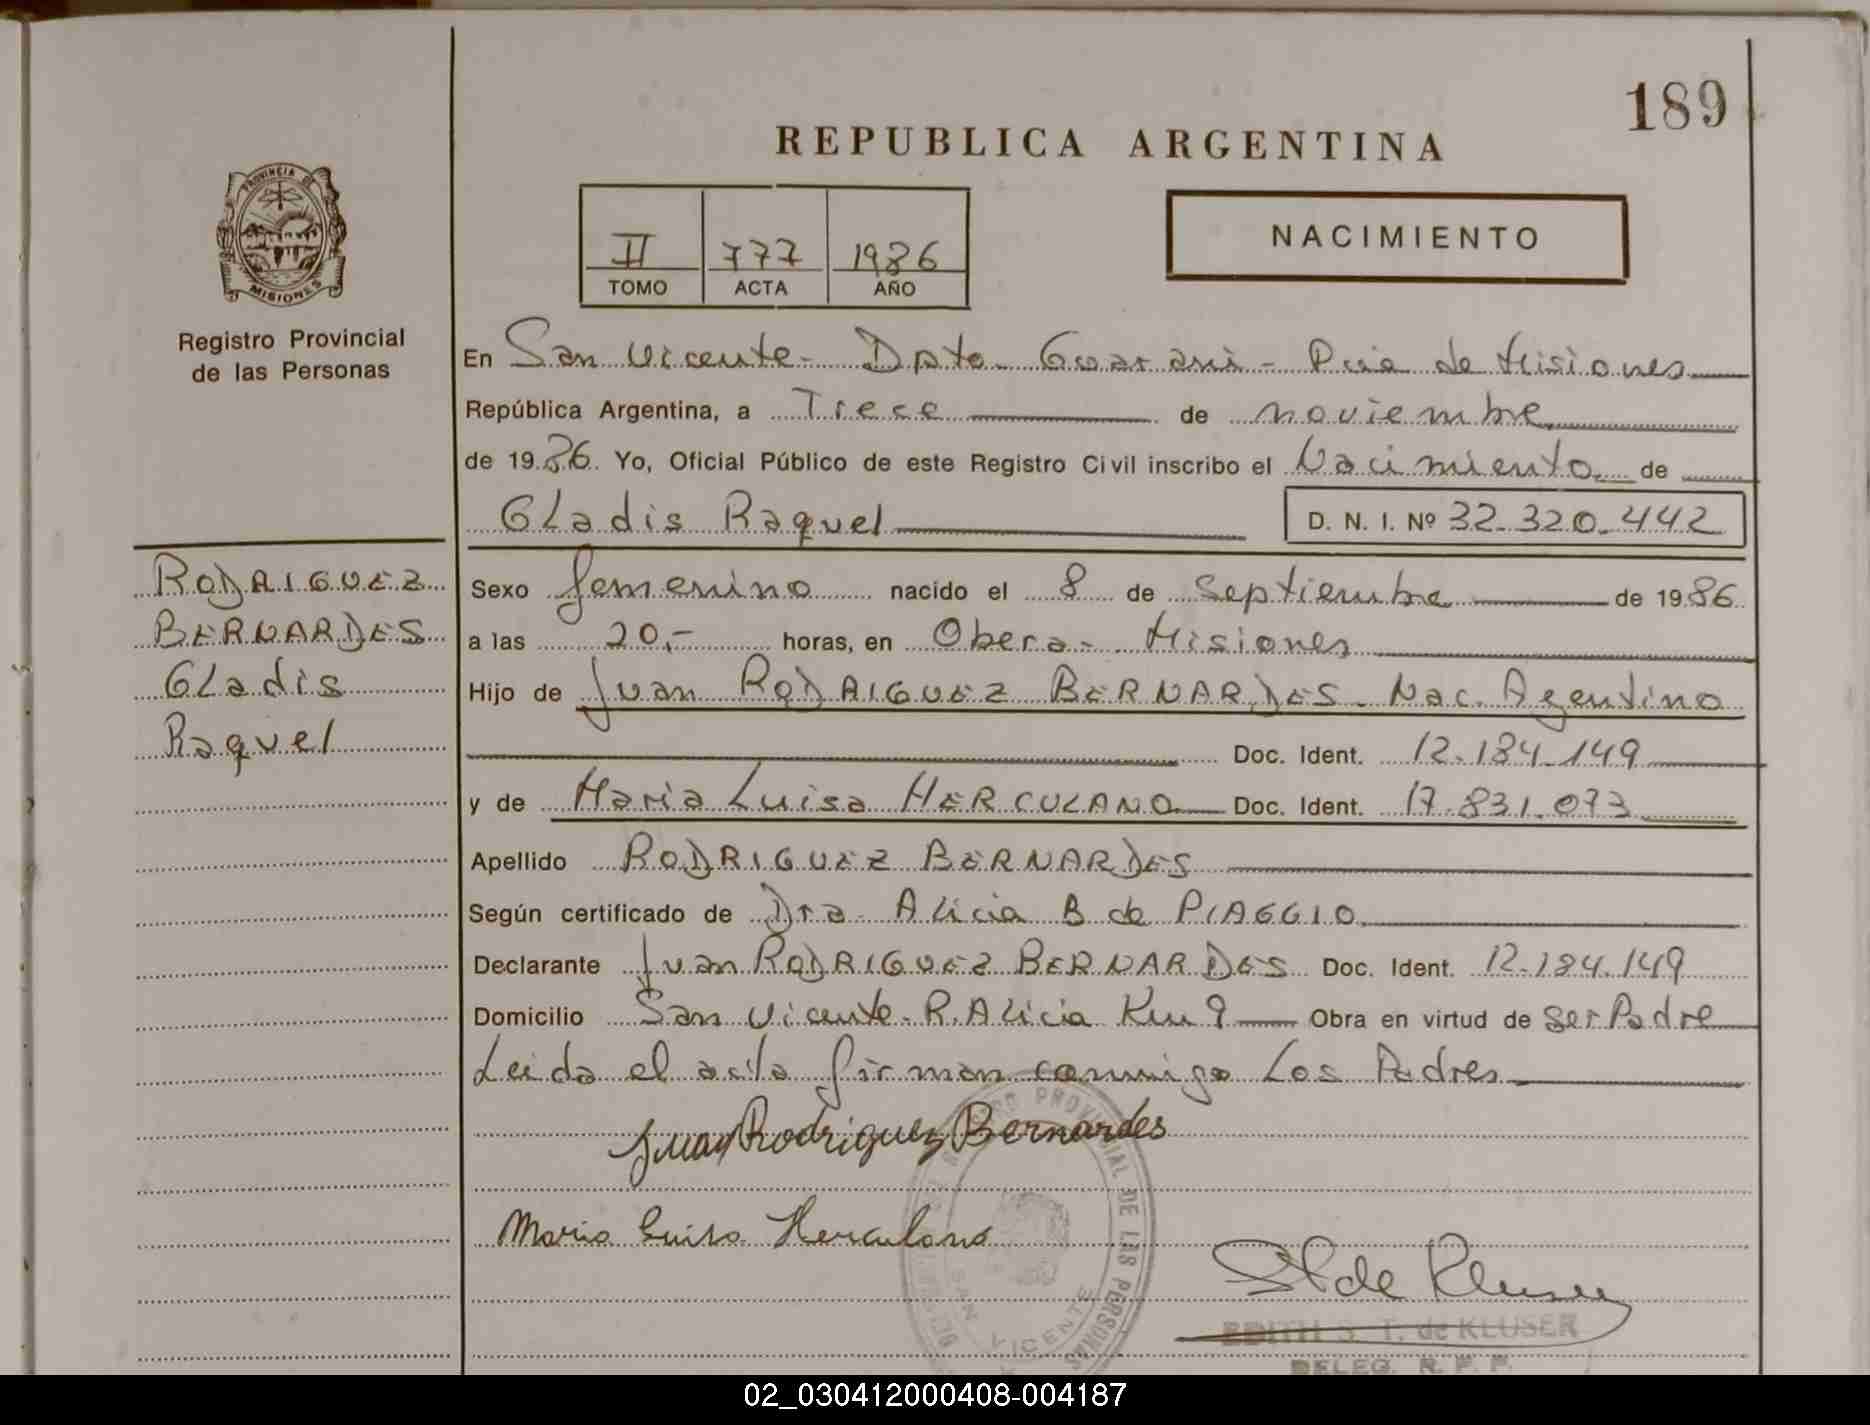 189
REPUBLICA ARGENTINA
PROVINCIA DE
MISIONES
Registro Provincial
de las Personas
II 777 1986
TOMO ACTA AÑO
NACIMIENTO
En San Vicente - Dpto Guarani - Pcia de Misiones
República Argentina, a Trece de noviembre
de 1986. Yo, Oficial Público de este Registro Civil inscribo el Nacimiento de
Gladis Raquel D. N. I. Nº 32.320.442
RODRIGUEZ
BERNARDES
Gladis
Raquel
Sexo femenino nacido el 8 de Septiembre de 1986
a las 20,- horas, en Obera - Misiones
Hijo de Juan RODRIGUEZ BERNARDES. Nac. Agentino
Doc. Ident. 12.184.149
y de Maria Luisa HERCULANO Doc. Ident. 17.831.073
Apellido RODRIGUEZ BERNARDES
Según certificado de Dra Alicia B de PIAGGIO
Declarante Juan RODRIGUEZ BERNARDES Doc. Ident. 12.184.149
Domicilio San Vicente - R. Alicia Km 9 Obra en virtud de ser Padre
Leida el acta firman conmigo Los Padres
Juan Rodriguez Bernardes
Maria Luisa Herculano
PROVINCIAL DE LAS PERSONAS
SAN VICENTE
de Kluser
EDITH S. T. de KLUSER
DELEG. R. P. P.
02_030412000408-004187